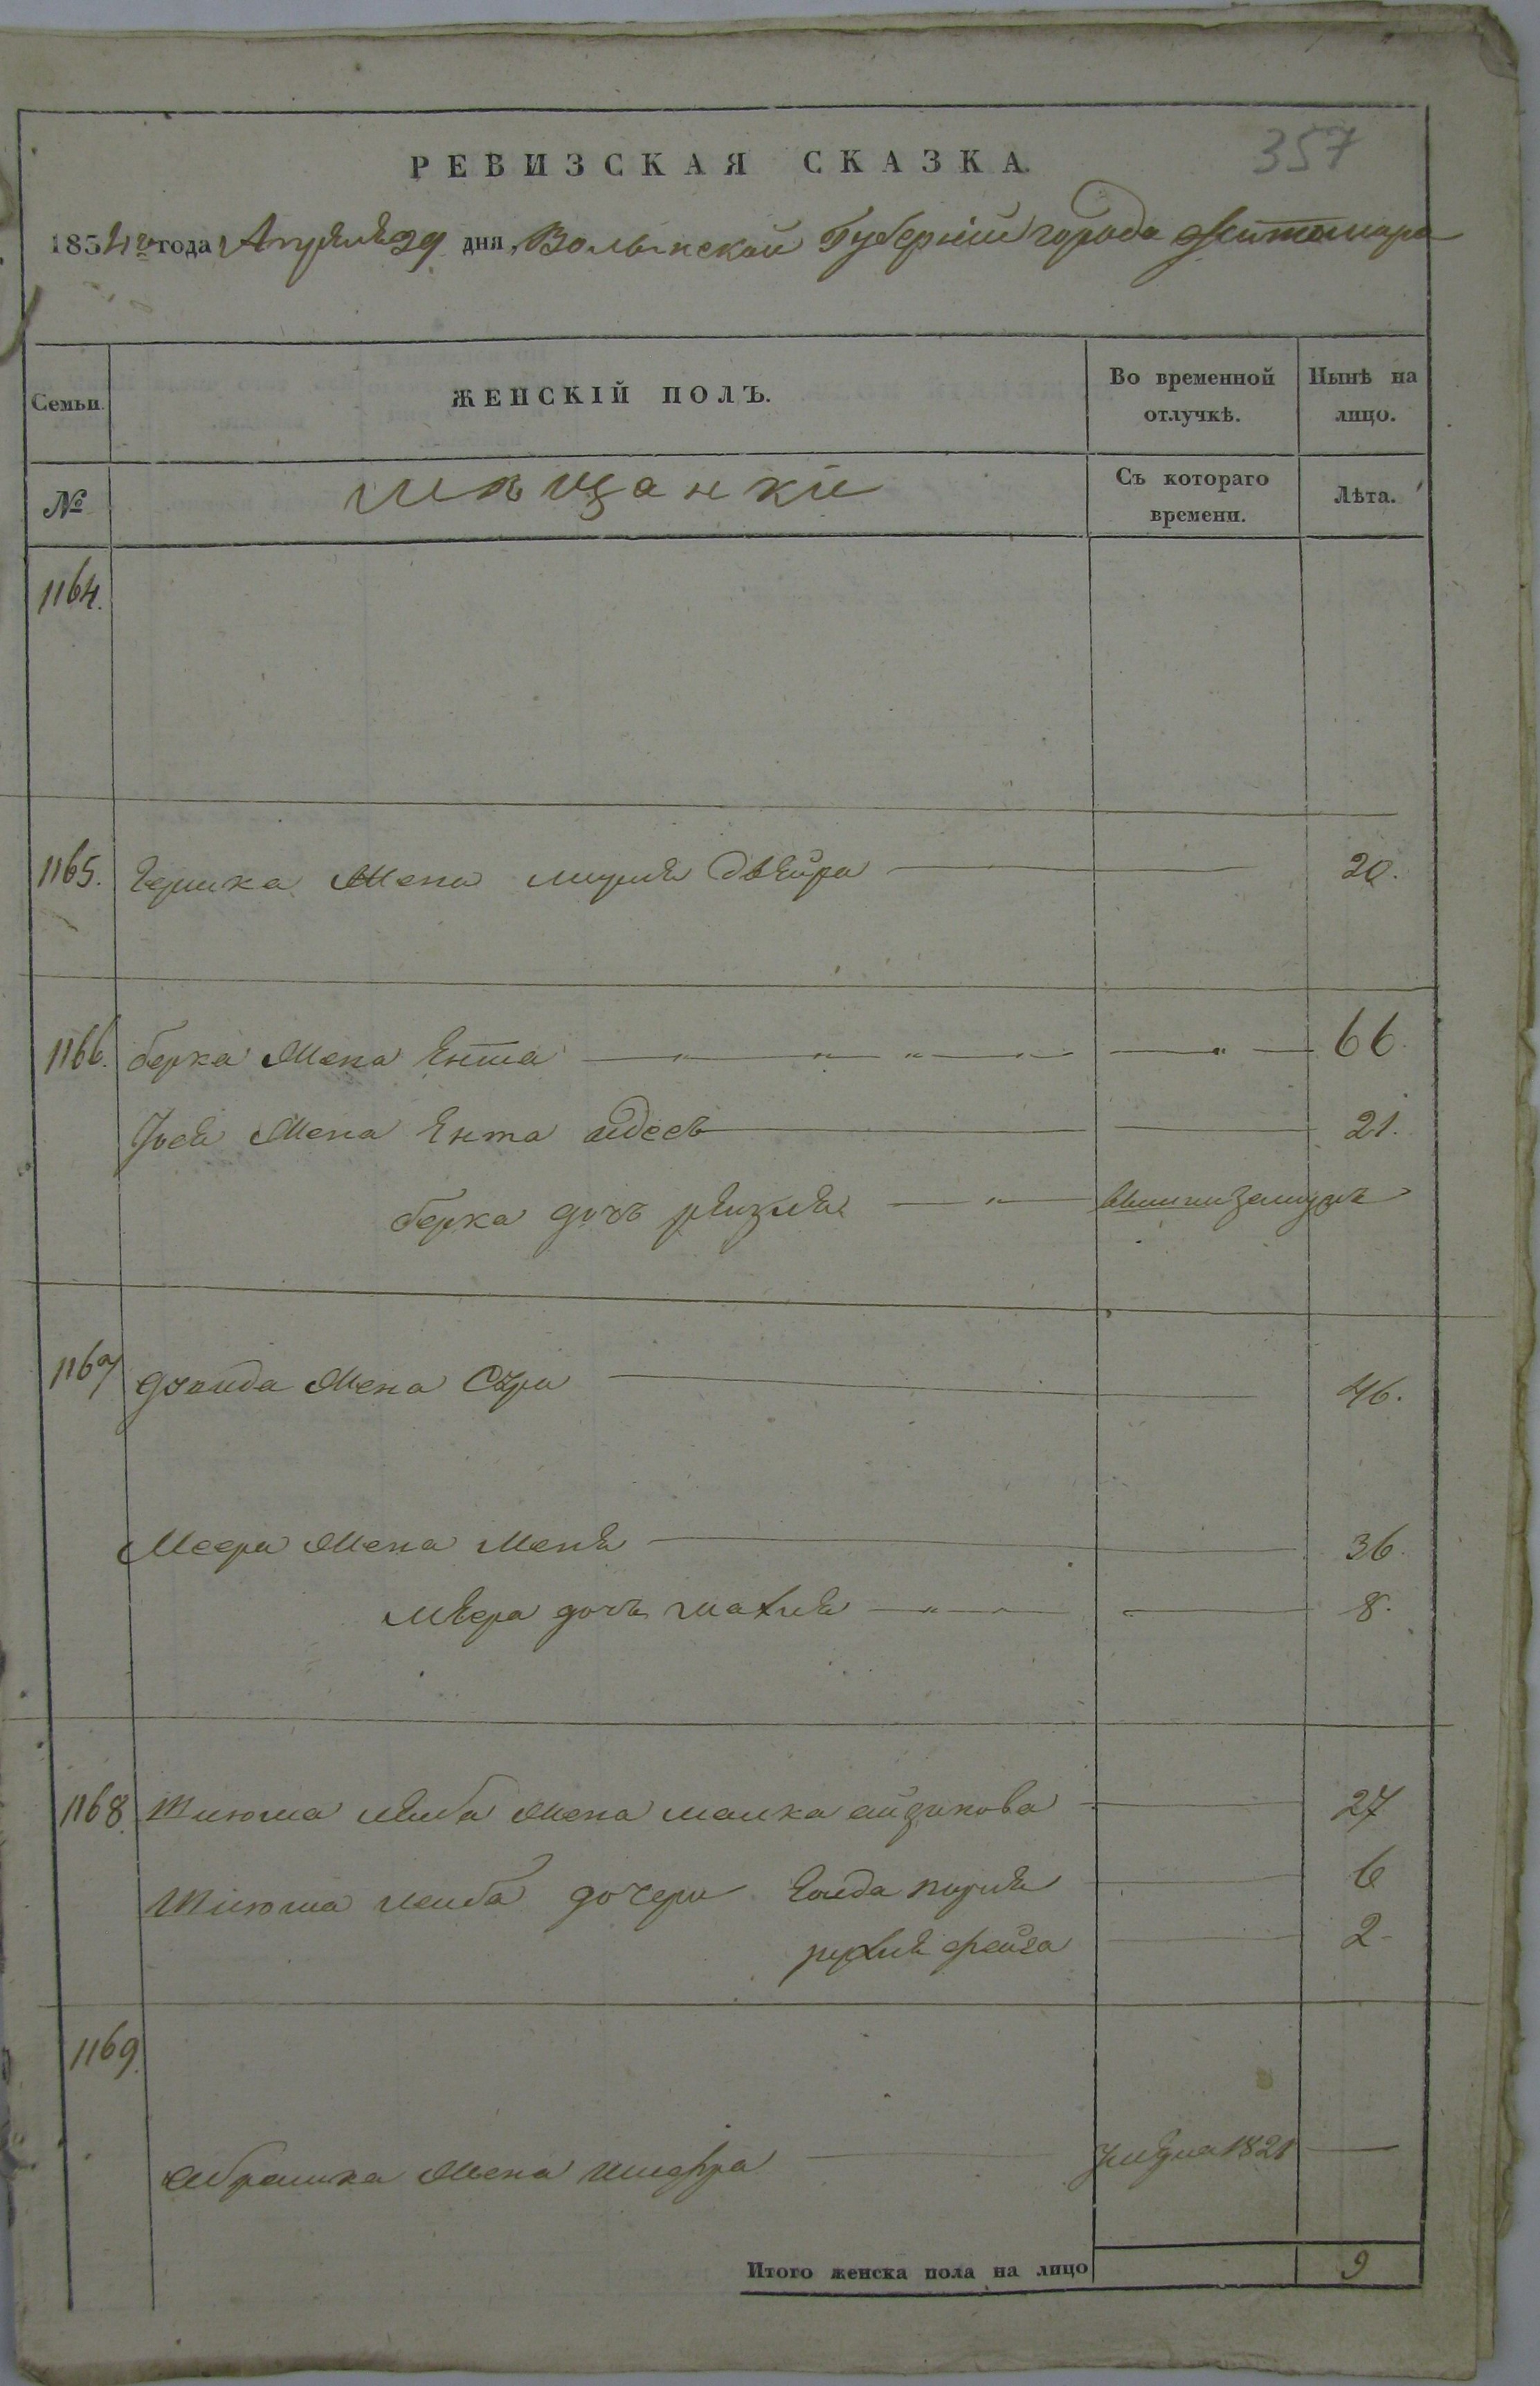 357
РЕВИЗСКАЯ СКАЗКА.
1854го года Апреля 29 дня, Волынской Губерніи города Житомира
Семьи. ЖЕНСКІЙ ПОЛЪ. Во временной отлучкѣ. Нынѣ на лицо.
№ Мѣщанки Съ котораго времени. Лѣта.
1164.
1165. Гершка Жена Двейра 20.
1166. берка Жена Ента 66.
Жена Ента 21.
берка дочь рейзля замужъ
1167 Жена Сура 46.
Меера Жена Меня 36.
Меера дочь 8.
1168. Шлюма лейба Жена малка айзикова 27
Шлюма лейба дочери перля 6
рухля фейга 2
1169.
Абрамка Жена Шифра умерла 1821
Итого женска пола на лицо 9